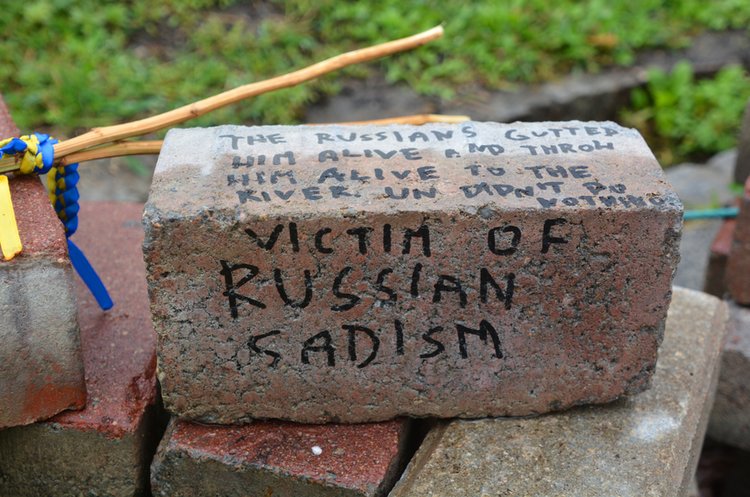 THE RUSSIANS GUTTED
HIM ALIVE AND THROW
HIM ALIVE TO THE
RIVER UN DIDN'T DO
NOTHING
VICTIM OF
RUSSIAN
SADISM